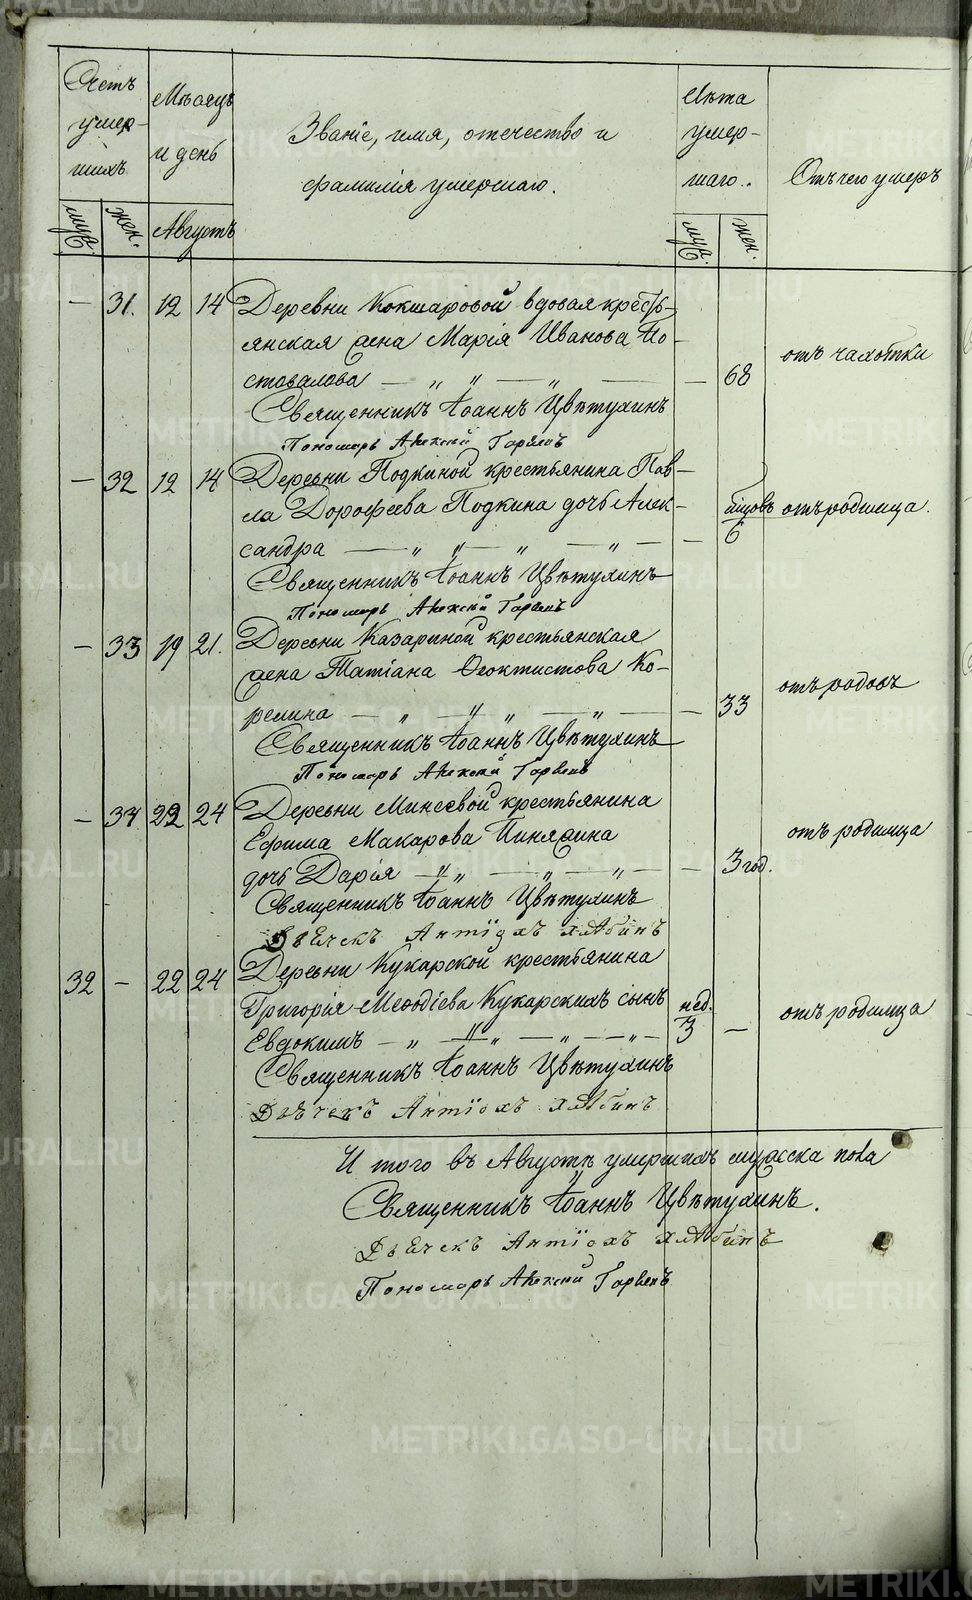 Счетъ умер-шихъ
Мѣсяцъ и день
Званіе, имя, отечество и
фамилія умершаго.
Лѣта умер-шаго.
Отъ чего умеръ
муж. жен. Августъ муж. жен.
— 31. 12 14 Деревни Кокшаровой вдовая кресть-
янская жена Марія Иванова По-
стовалова — „ „ — „ — — 68 отъ чахотки
Священникъ Іоаннъ Цвѣтухинъ
Пономарь Алексій
— 32 12 14 Деревни Подкиной крестьянина Пав-
ла Дорофеева Подкина дочь Алек-
сандра — „ „ — „ — „ — — 6 мѣсцовъ отъ родимца.
Священникъ Іоаннъ Цвѣтухинъ
Пономарь Алексій
— 33 19 21. Деревни Казариной крестьянская
жена Татіана Ѳеоктистова Ко-
релина — „ — „ „ — „ — — 33 отъ родовъ
Священникъ Іоаннъ Цвѣтухинъ
Пономарь Алексій
— 34 22 24 Деревни Минеевой крестьянина
Ефима Макарова Пинягина
дочь Дарія — „ „ — „ — „ — — 3 год. отъ родимца
Священникъ Іоаннъ Цвѣтухинъ
Дьячекъ Антіохъ
32 — 22 24 Деревни Кукарской крестьянина
Григорія Меѳодіева Кукарскихъ сынъ
Евдокимъ — „ — „ „ — „ — „ — нед. 3 — отъ родимца
Священникъ Іоаннъ Цвѣтухинъ
Дьячекъ Антіохъ
И того въ Августѣ умершихъ мужеска пола
Священникъ Іоаннъ Цвѣтухинъ.
Дьячекъ Антіохъ
Пономарь Алексій
METRIKI.GASO-URAL.RU